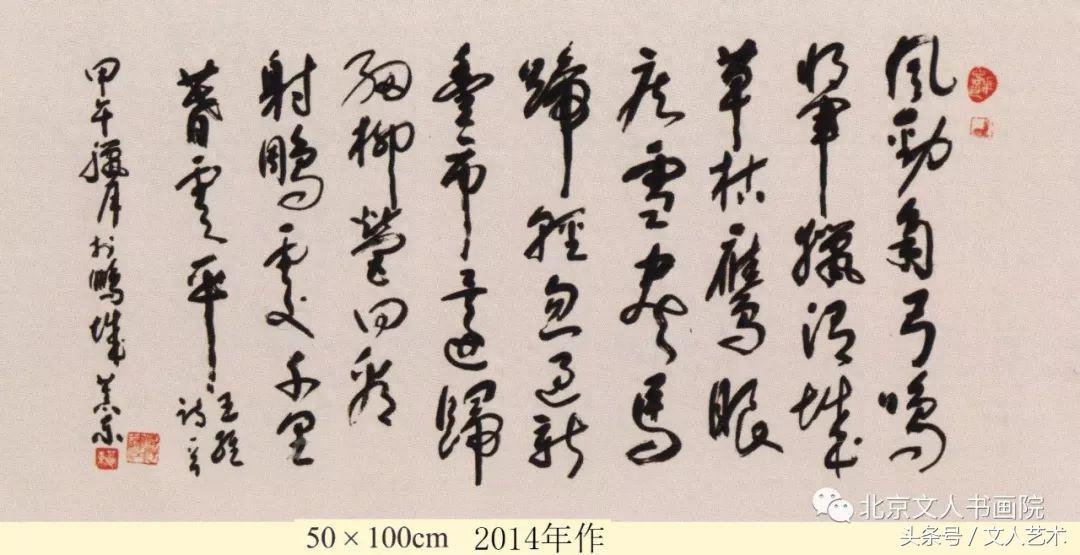 風勁角弓鳴
將軍獵渭城
草枯鷹眼
疾雪盡馬
蹄輕忽過新
豐市還歸
細柳營回看
射鵰處千里
暮雲平
王維
詩一首
甲午臘月於鵬城
北京文人书画院
头条号 / 文人艺术
50 × 100cm 2014年作